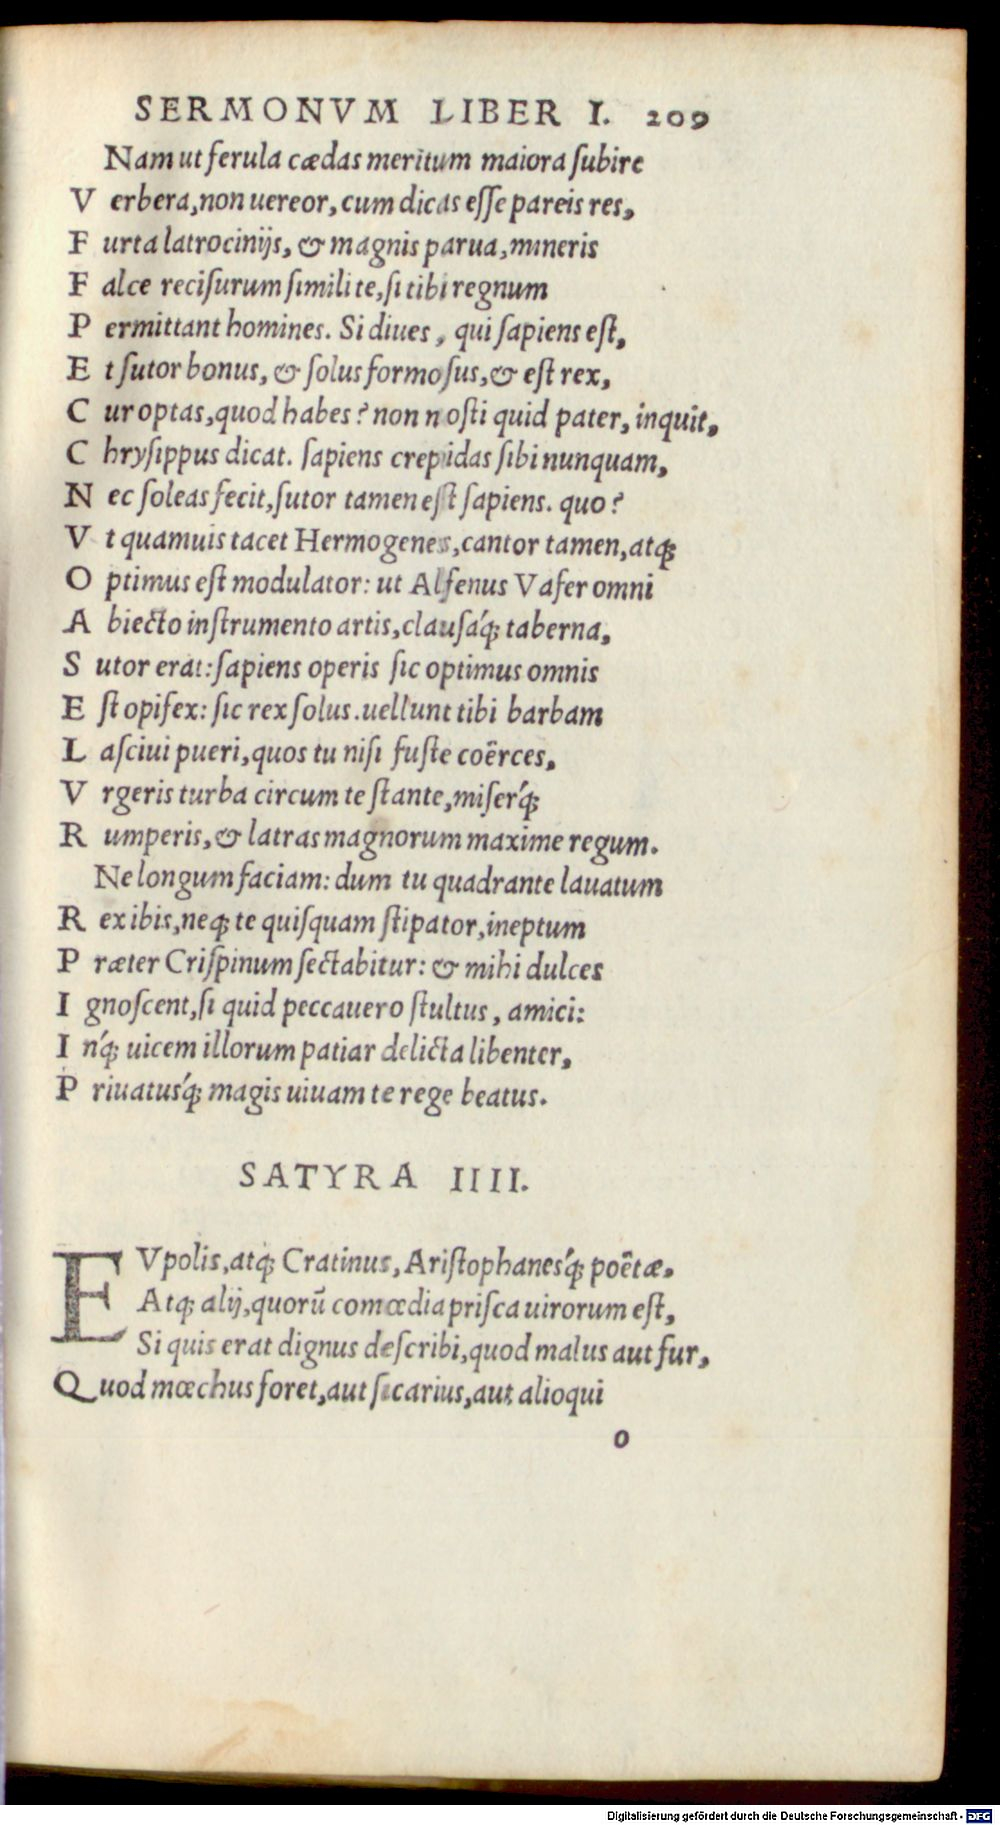 SERMONVM LIBER I. 209
Nam ut ferula cædas meritum maiora subire
V erbera, non uereor, cum dicas esse pareis res,
F urta latrocinijs, & magnis parua, mineris
F alce recisurum simili te, si tibi regnum
P ermittant homines. Si diues, qui sapiens est,
E t sutor bonus, & solus formosus, & est rex,
C ur optas, quod habes? non nosti quid pater, inquit,
C hrysippus dicat. sapiens crepidas sibi nunquam,
N ec soleas fecit, sutor tamen est sapiens. quo?
V t quamuis tacet Hermogenes, cantor tamen, atq;
O ptimus est modulator: ut Alfenus Vafer omni
A biecto instrumento artis, clausáq; taberna,
S utor erat: sapiens operis sic optimus omnis
E st opifex: sic rex solus. uellunt tibi barbam
L asciui pueri, quos tu nisi fuste coërces,
V rgeris turba circum te stante, misérq;
R umperis, & latras magnorum maxime regum.
Ne longum faciam: dum tu quadrante lauatum
R ex ibis, neq; te quisquam stipator, ineptum
P ræter Crispinum sectabitur: & mihi dulces
I gnoscent, si quid peccauero stultus, amici:
I nq́; uicem illorum patiar delicta libenter,
P riuatusq́; magis uiuam te rege beatus.
SATYRA IIII.
EVpolis, atq; Cratinus, Aristophanesq́; poëtæ.
Atq; alij, quorũ comœdia prisca uirorum est,
Si quis erat dignus describi, quod malus aut fur,
Quod mœchus foret, aut sicarius, aut alioqui
o
Digitalisierung gefördert durch die Deutsche Forschungsgemeinschaft - DFG